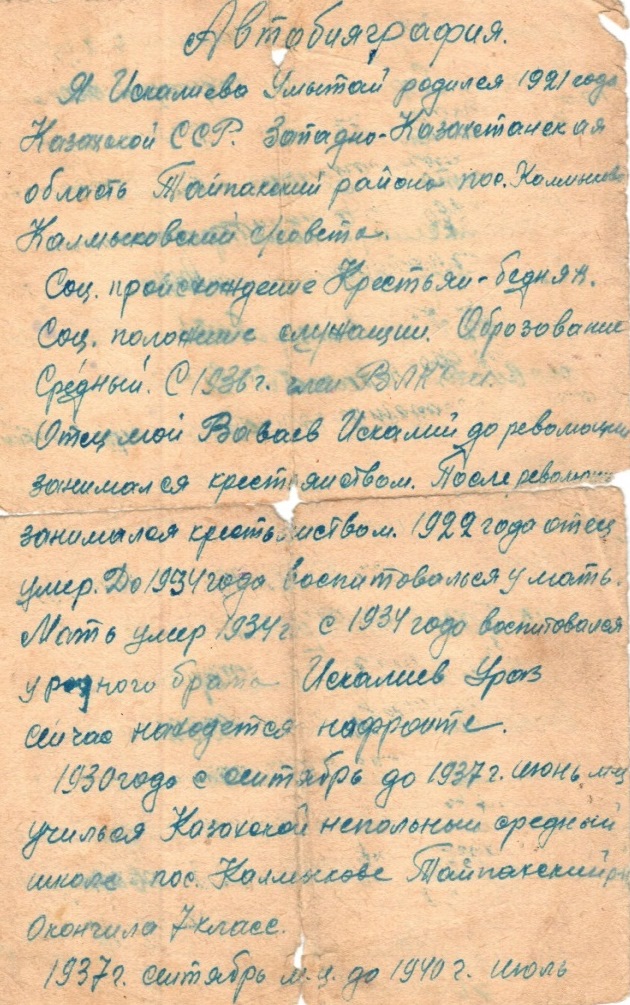 Автобияграфия.
Я Искалиева Умытай родился 1921 года
Казахской ССР. Западно-Казахстанская
область Тайпакский района пос. Калмыково
Калмыковский совета.
Соц. происхождение Крестьян-бедняк.
Соц. положние служащии. Оброзование
Средный. С 1936 г. член ВЛКСМ.
Отец мой Баваев Искалий до революции
занимался крестьянством. После революции
занимался крестьянством. 1922 года отец
умер. До 1934 года воспитовалься у мать.
Мать умер 1934 г. с 1934 года воспитовался
у родного брата Искалиев Ураз
сейчас находется нафронте.
1930 года с сентябрь до 1937 г. июнь м-ц
училься Казахской непольный средный
школе пос. Калмыкове Тайпакский
Окончила 7 класс.
1937 г. сентябрь м.ц. до 1940 г. июль